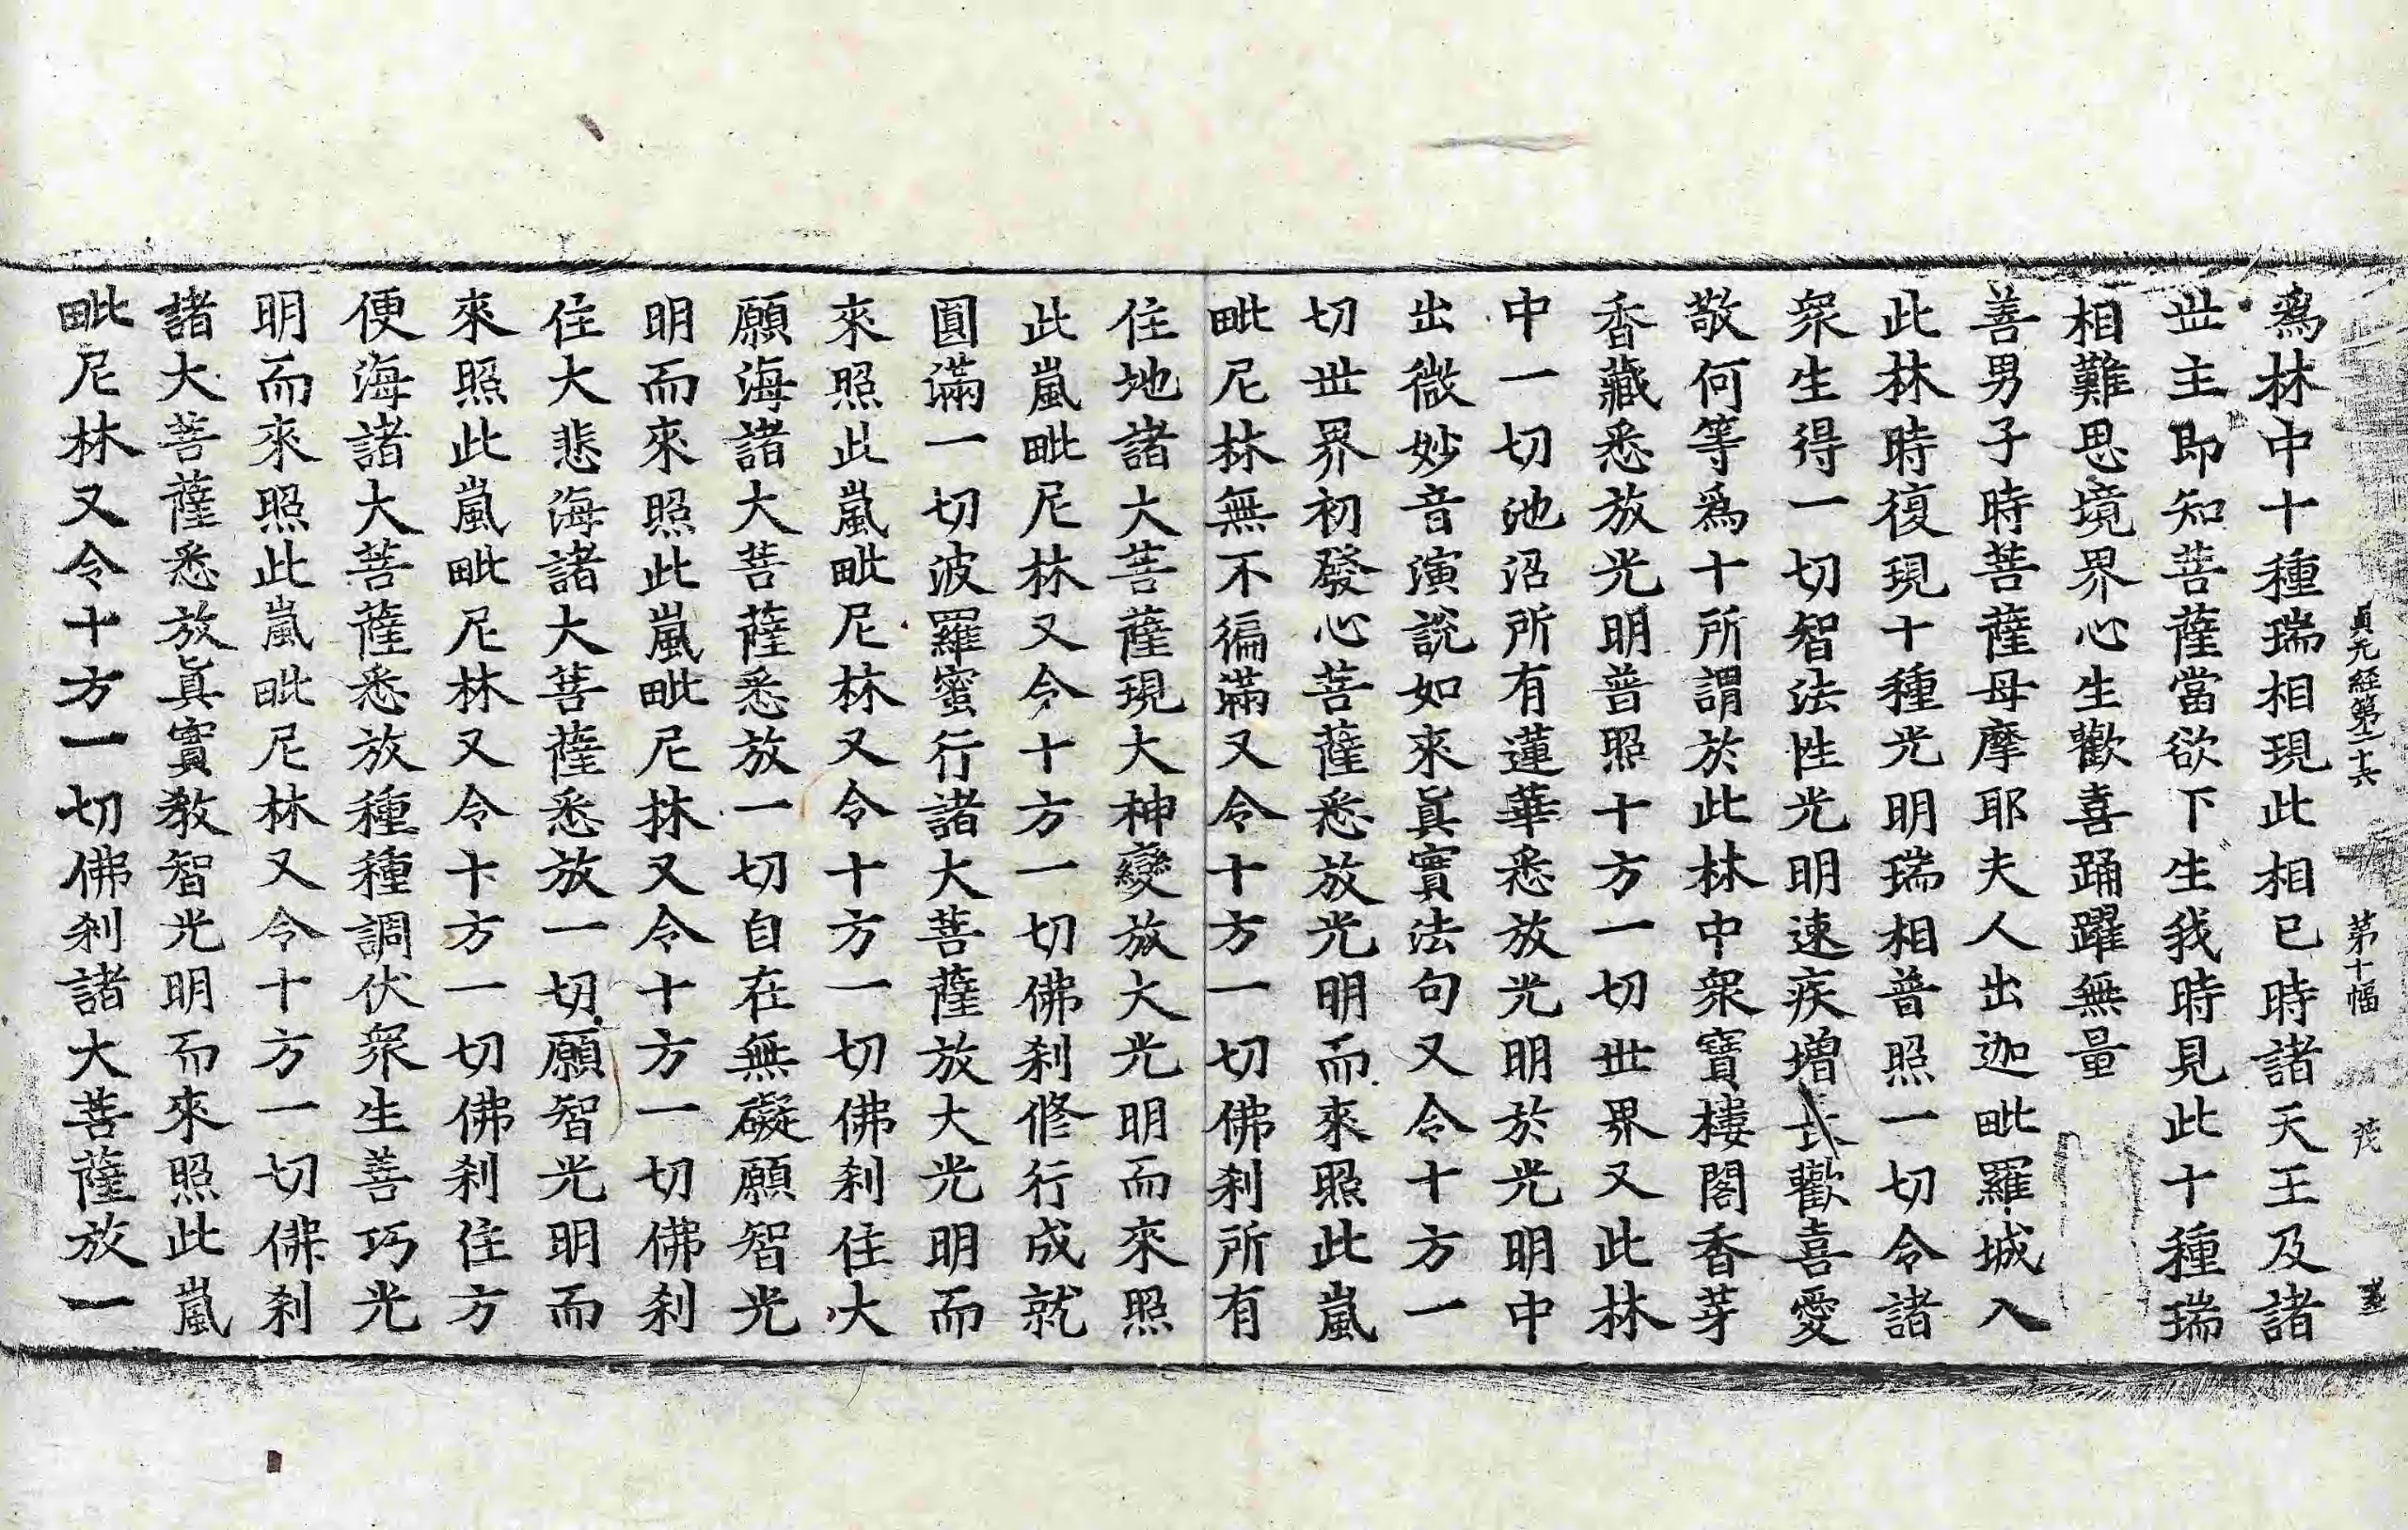 貞元經第二十六 第十幅 茂
爲林中十種瑞相現此相已時諸天王及諸
世主即知菩薩當欲下生我時見此十種瑞
相難思境界心生歡喜踊躍無量
善男子時菩薩母摩耶夫人出迦毗羅城入
此林時復現十種光明瑞相普照一切令諸
衆生得一切智法性光明速疾增長歡喜愛
敬何等爲十所謂於此林中衆寶樓閣香芽
香藏悉放光明普照十方一切世界又此林
中一切池沼所有蓮華悉放光明於光明中
出微妙音演說如來眞實法句又令十方一
切世界初發心菩薩悉放光明而來照此嵐
毗尼林無不徧滿又令十方一切佛刹所有
住地諸大菩薩現大神變放大光明而來照
此嵐毗尼林又令十方一切佛刹修行成就
圓滿一切波羅蜜行諸大菩薩放大光明而
來照此嵐毗尼林又令十方一切佛刹住大
願海諸大菩薩悉放一切自在無礙願智光
明而來照此嵐毗尼林又令十方一切佛刹
住大悲海諸大菩薩悉放一切願智光明而
來照此嵐毗尼林又令十方一切佛刹住方
便海諸大菩薩悉放種種調伏衆生善巧光
明而來照此嵐毗尼林又令十方一切佛刹
諸大菩薩悉放眞實教智光明而來照此嵐
毗尼林又令十方一切佛刹諸大菩薩放一